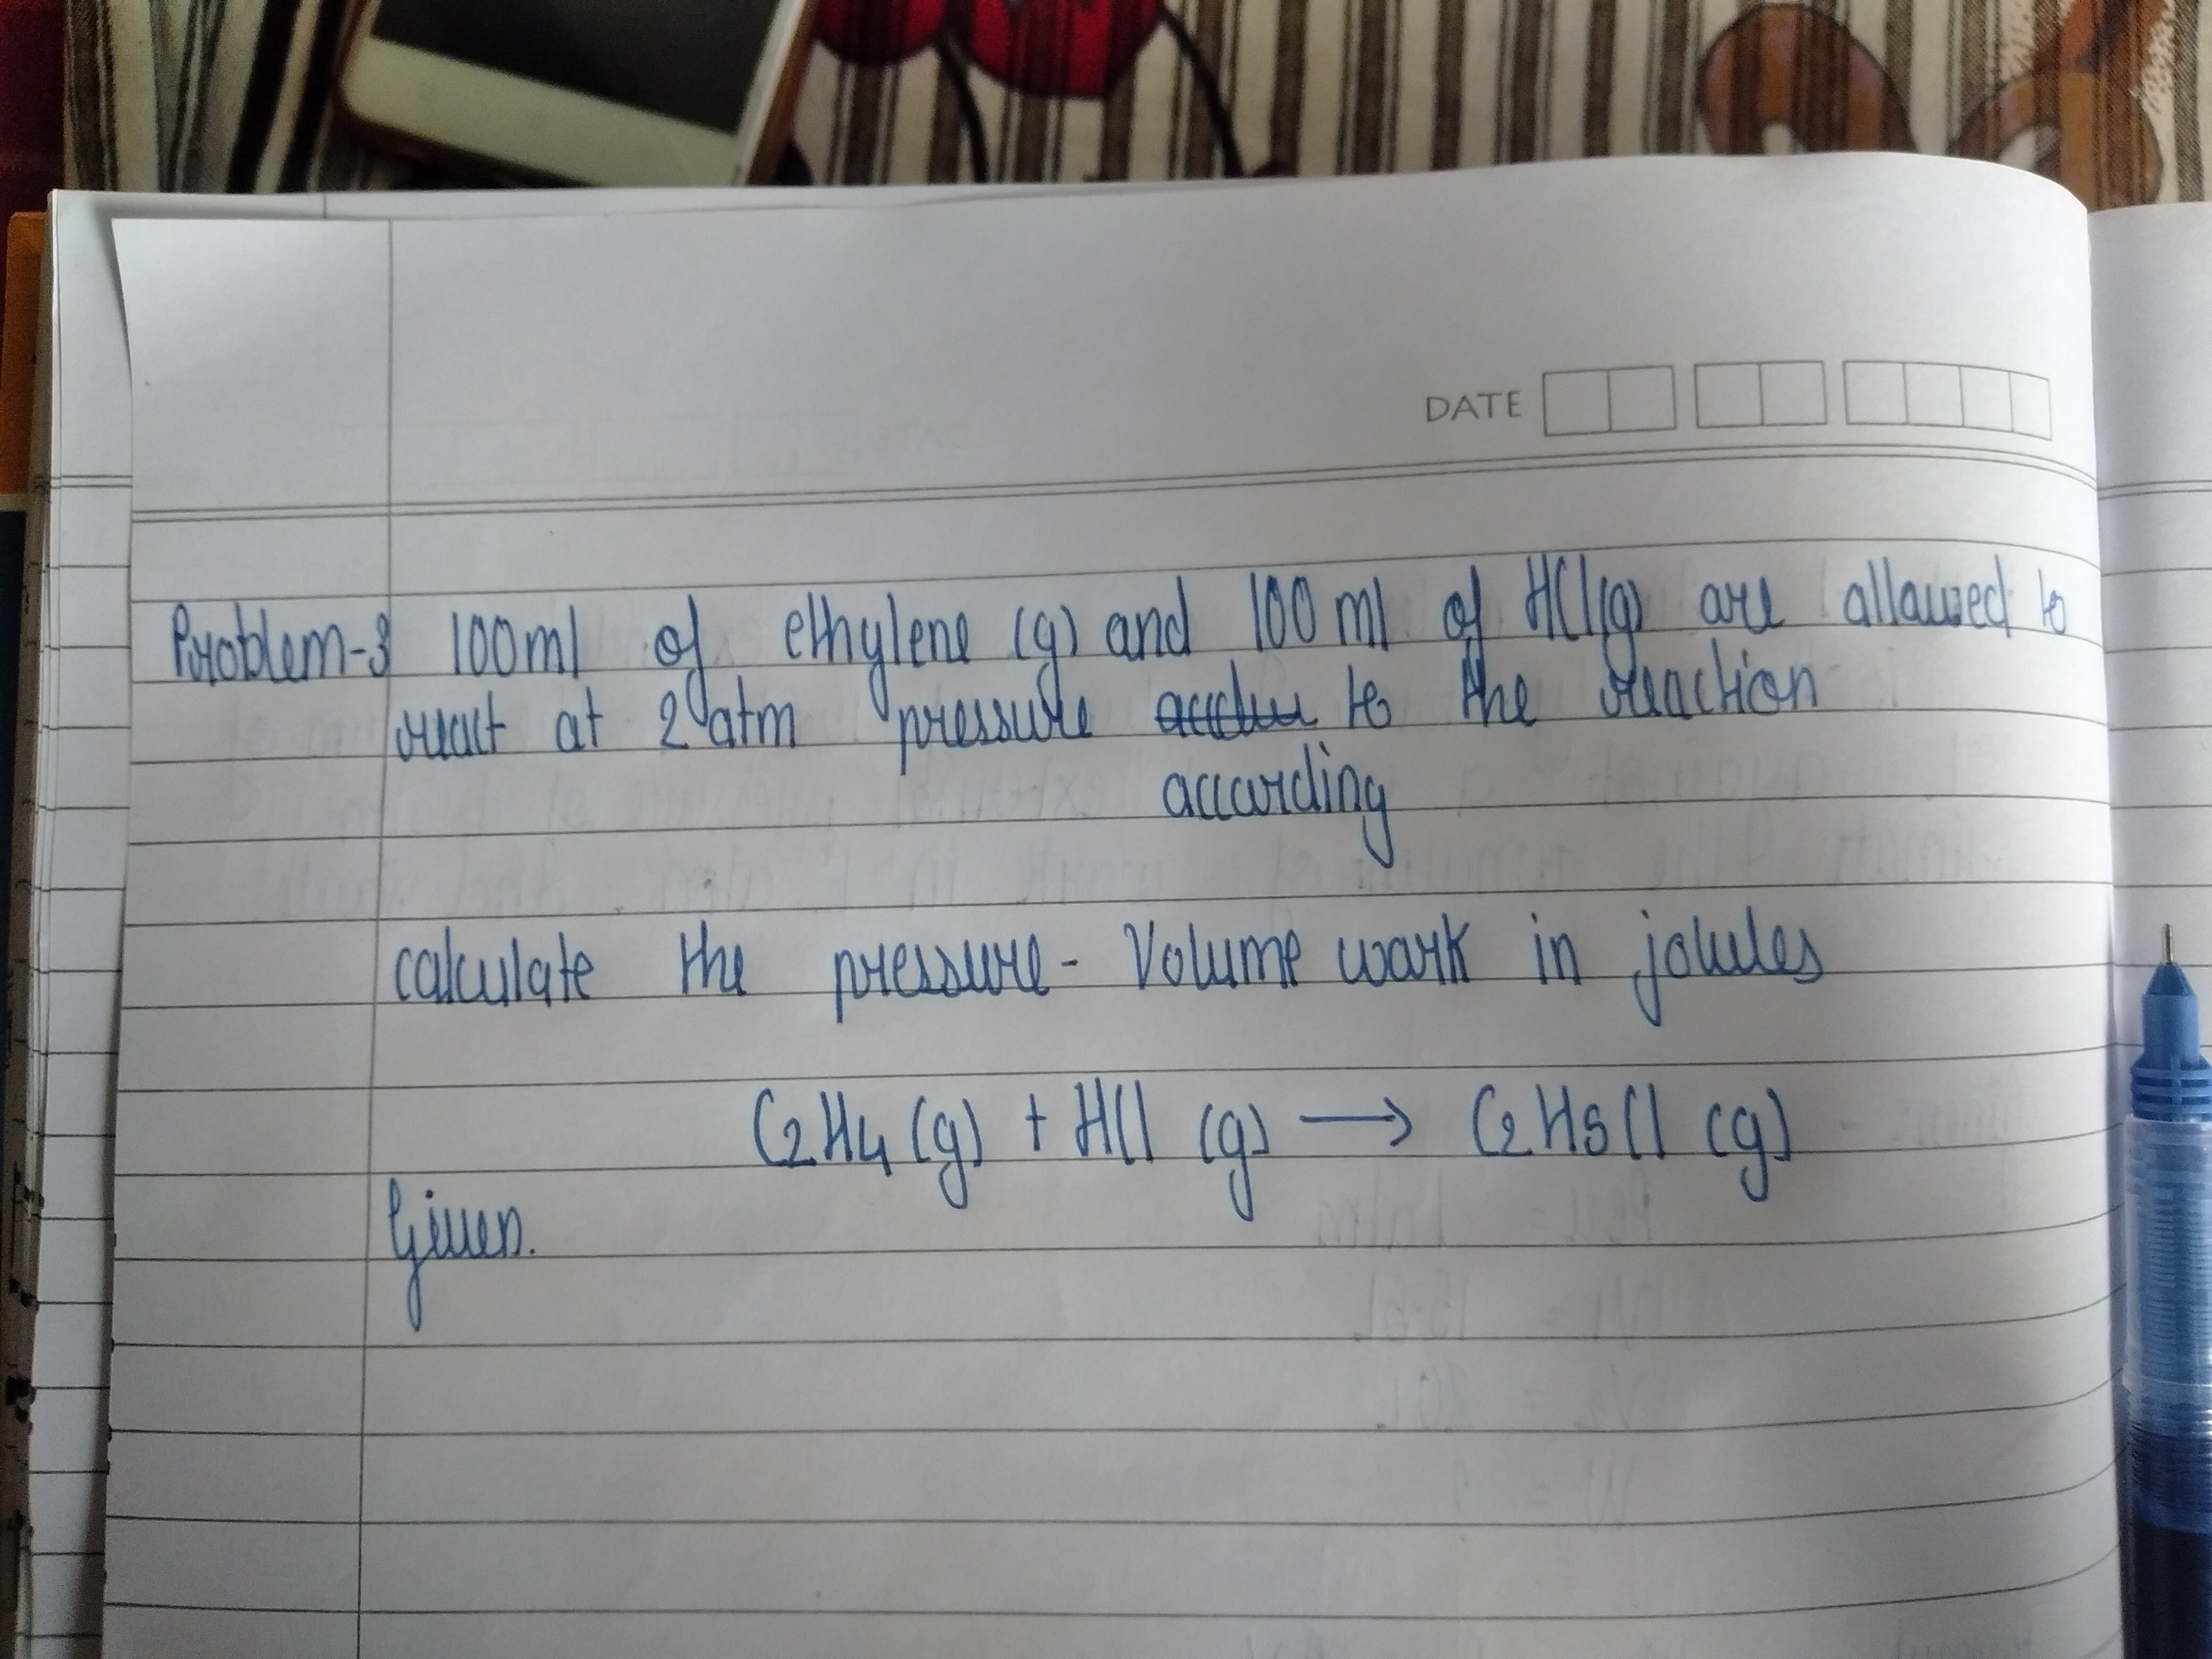 DATE
Problem-3 100ml of ethylene (g) and 100 ml of HCl(g) are allowed to
react at 2 atm pressure to the reaction
according
calculate the pressure - Volume work in joules
C2H4 (g) + HCl (g) → C2H5Cl (g)
Given.